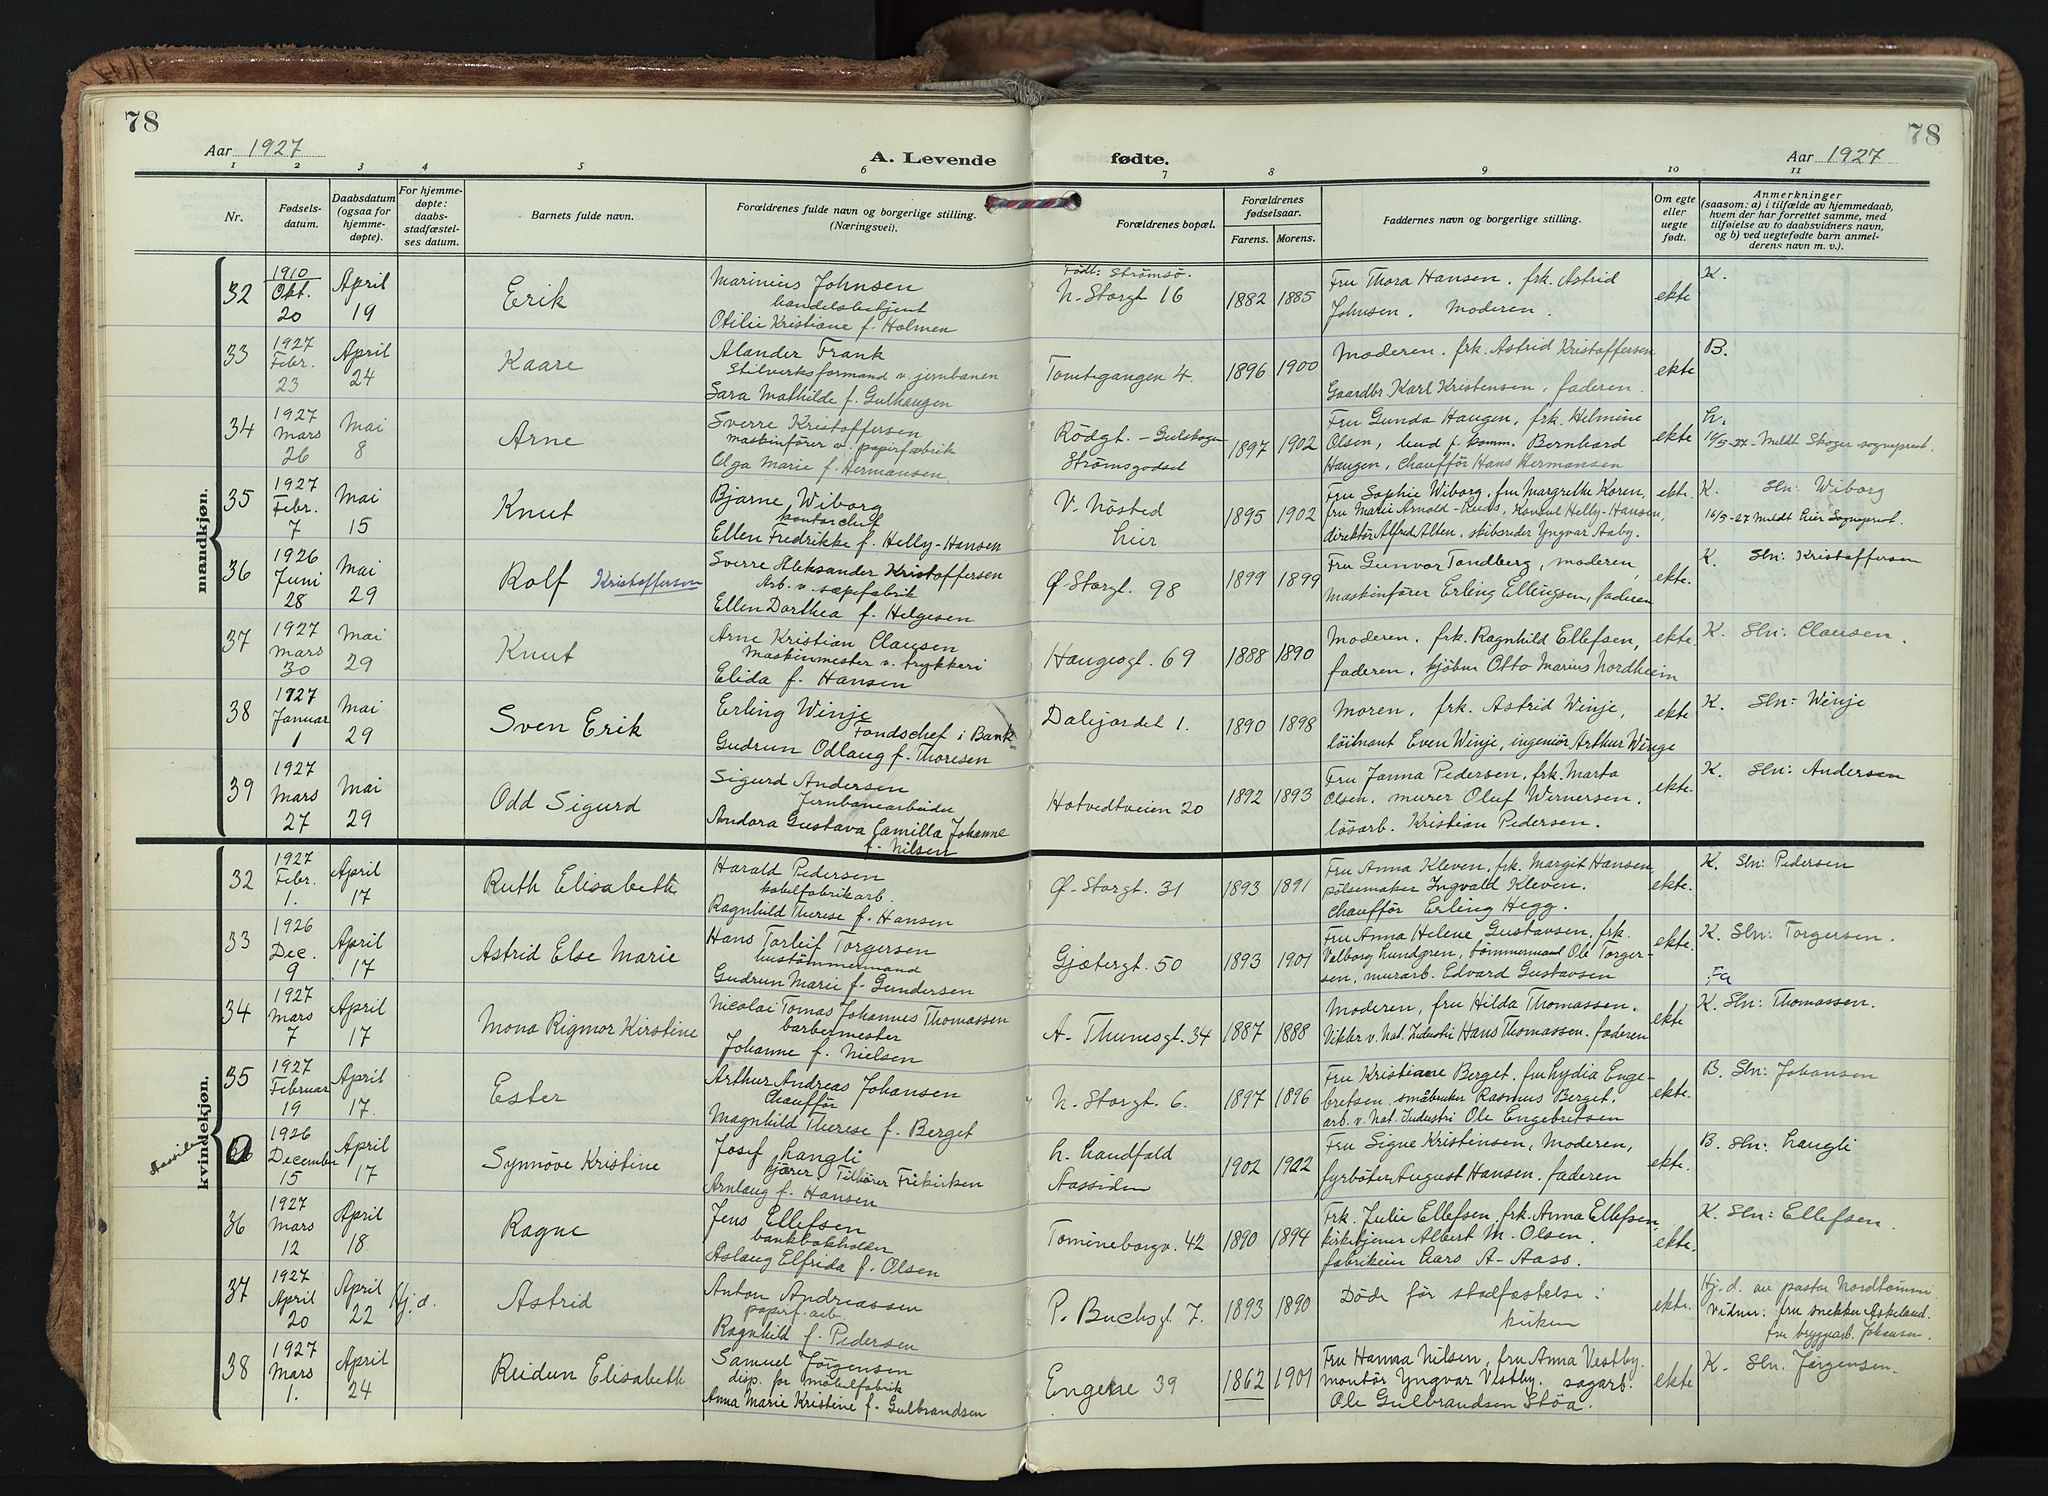 78
78
Aar 1927
A. Levende
fødte.
Aar 1927
1 2 3 4 5 6 7 8 9 10 11
Nr.
Fødsels-
datum.
Daabsdatum
(ogsaa for
hjemme-
døpte).
For hjemme-
døpte:
daabs-
stadfæstel-
ses datum.
Barnets fulde navn.
Forældrenes fulde navn og borgerlige stilling.
(Næringsvei).
Forældrenes bopæl.
Forældrenes
fødselsaar.
Farens. Morens.
Faddernes navn og borgerlige stilling.
Om egte
eller
uegte
født.
Anmerkninger
(saasom: a) i tilfælde av hjemmedaab,
hvem der har forrettet samme, med
tilføielse av to daabsvidners navn,
og b) ved uegtefødte barn anmel-
derens navn m. v.).
mandkjøn.
32
1910
Okt.
20
April
19
Erik
Marinius Johnsen
handelsbetjent
Otilie Kristiane f. Holmen
Födt: Strömsö.
N. Storgt 16
1882 1885
Fru Thora Hansen, frk. Astrid
Johnsen. Moderen.
ekte
K.
33
1927
Febr.
23
April
24
Kaare
Alander Frank
Stilverksformand v. jernbanen
Sara Mathilde f. Gulhaugen
Tomtegangen 4.
1896 1900
Moderen. frk. Astrid Kristoffersen
Gaardbr. Karl Kristensen, faderen.
ekte
B.
34
1927
Mars
26
Mai
8
Arne
Sverre Kristoffersen
maskinfører v. papirfabrik
Olga Marie f. Hermansen
Rödgt. - Gulskogen
Strømsgodset
1897 1902
Fru Gunda Haugen, frk. Helmine
Olsen, bud f. komm. Bernhard
Haugen, Chaufför Hans Hermansen
ekte
L.
10/5-27 Meldt Skoger sogneprest.
35
1927
Febr.
7
Mai
15
Knut
Bjarne Wiborg
kontorchef
Ellen Fredrikke f. Helly-Hansen
V. Nøsted
Lier
1895 1902
Fru Sophie Wiborg, fru Margrethe Koren,
fru Marie Arnold-, Konsul Helly-Hansen,
direktör Alfred Alten, skibsreder Yngvar Aaby.
ekte.
K. Sln: Wiborg
16/5-27 Meldt Lier Sogneprest.
36
1926
Juni
28
Mai
29
Rolf Kristoffersen
Sverre Aleksander Kristoffersen
Arb. v. sæpefabrik
Ellen Dorthea f. Helgesen
Ø. Storgt. 98
1899 1899
Fru Gunvor Tandberg, moderen,
Maskinfører Erling Ellingsen, faderen
ekte.
K. Sln: Kristoffersen
37
1927
Mars
30
Mai
29
Knut
Arne Kristian Clausen
Maskinmester v. trykkeri
Elida f. Hansen
Haugesgt. 69
1888 1890
Moderen, frk. Ragnhild Ellefsen,
faderen, kjøbm Otto Marius Nordheim
ekte.
K. Sln: Clausen.
38
1927
Januar
1
Mai
29
Sven Erik
Erling Winje
Fondschef i Bank
Gudrun Odlaug f. Thoresen
Dalejordet 1.
1890 1898
Moren, frk. Astrid Winje,
løitnant Even Winje, ingeniør Arthur Winge
ekte
K. Sln: Winje
39
1927
Mars
27
Mai
29
Odd Sigurd
Sigurd Andersen
Jernbanearbeider
Andora Gustava Camilla Johanne
f. Nilsen
Hotvedtveien 20
1892 1893
Fru Janna Pedersen, frk. Marta
Olsen, murer Oluf Wernersen.
løsarb. Kristian Pedersen.
ekte.
K. Sln: Andersen
kvindekjøn.
32
1927
Febr.
1.
April
17
Ruth Elisabeth
Harald Pedersen
kabelfabrikarb.
Ragnhild Therese f. Hansen
Ø. Storgt. 31
1893 1891
Fru Anna Kleven, frk. Margit Hansen
pølsemaker Ingvald Kleven.
Chaufför Erling Hegg.
ekte.
K. Sln: Pedersen
33
1926
Dec.
9
April
17
Astrid Else Marie
Hans Torleif Torgersen
hustømmermand
Gudrun Marie f. Gundersen
Gjætergt. 50
1893 1901
Fru Anna Helene Gustavsen, frk.
Valborg Lundgren, tømmermand Ole Torger-
sen, murarb. Edvard Gustavsen
ekte.
K. Sln: Torgersen.
34
1927
Mars
7
April
17
Mona Rigmor Kirstine
Nicolai Tomas Johannes Thomassen
barbermester
Johanne f. Nielsen
A. Thunesgt. 34
1887 1888
Moderen, fru Hilda Thomassen.
Vikler v. Nat. Industri Hans Thomassen. faderen
ekte
Fa
K. Sln: Thomassen.
35
1927
Februar
19
April
17.
Ester
Arthur Andreas Johansen
Chaufför
Magnhild Therese f. Berget
N. Storgt. 6.
1897 1896
Fru Kristiane Berget, fru Lydia Enge-
bretsen, småbruker Rasmus Berget,
arb. v. Nat. Industri Ole Engebretsen
ekte.
B. Sln: Johansen
0
1926
December
15
April
17
Synnöve Kristine
Josef Langli
kjører. Tilhører Frikirken
Arnlaug f. Hansen
L. Landfald
Aassiden
1902 1902
Fru Signe Kristensen, Moderen,
fyrbøter August Hansen, faderen
ekte.
B. Sln: Langli
36
1927
Mars
12
April
18
Ragne
Jens Ellefsen
bankbokholder
Aslaug Elfrida f. Olsen
Tomineborgv. 42
1890 1894
Frk. Julie Ellefsen, frk. Anna Ellefsen,
kirketjener Albert M. Olsen.
fabrikeier Lars A. Aass.
ekte.
K. Sln: Ellefsen.
37
1927
April
20
April
22
Hj.d.
Astrid
Anton Andreassen
papirf. arb.
Ragnhild f. Pedersen
P. Buchsgt 7.
1893 1890
Døde før stadfæstelse i
kirken
ekte.
Hj. d. av pastor Nordtømme
Vidner: fru snekker Askeland.
fru bryggearb. Johansen.
38
1927
Mars
1.
April
24
Reidun Elisabeth
Samuel Jørgensen
disp. for møbelfabrik
Anna Marie Kristine f. Gulbrandsen
Engene 39
1862 1901
Fru Hanna Nilsen, fru Anna Vestby.
montør Yngvar Vestby. sagarb.
Ole Gulbrandsen Støa.
ekte
K. Sln. Jørgensen.